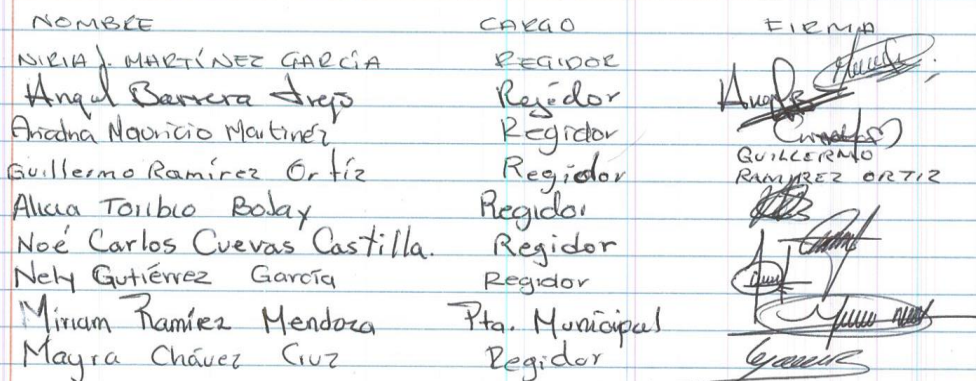 NOMBRE CARGO FIRMA
NIRIA J. MARTÍNEZ GARCÍA REGIDOR
Angel Barrera Trejo Regidor Angel
Ariadna Mauricio Martínez Regidor
Guillermo Ramírez Ortíz Regidor GUILLERMO RAMIREZ ORTIZ
Alicia Toribio Regidor
Noé Carlos Cuevas Castilla. Regidor
Nely Gutiérrez García Regidor
Miriam Ramírez Mendoza Pta. Municipal
Mayra Chávez Cruz Regidor